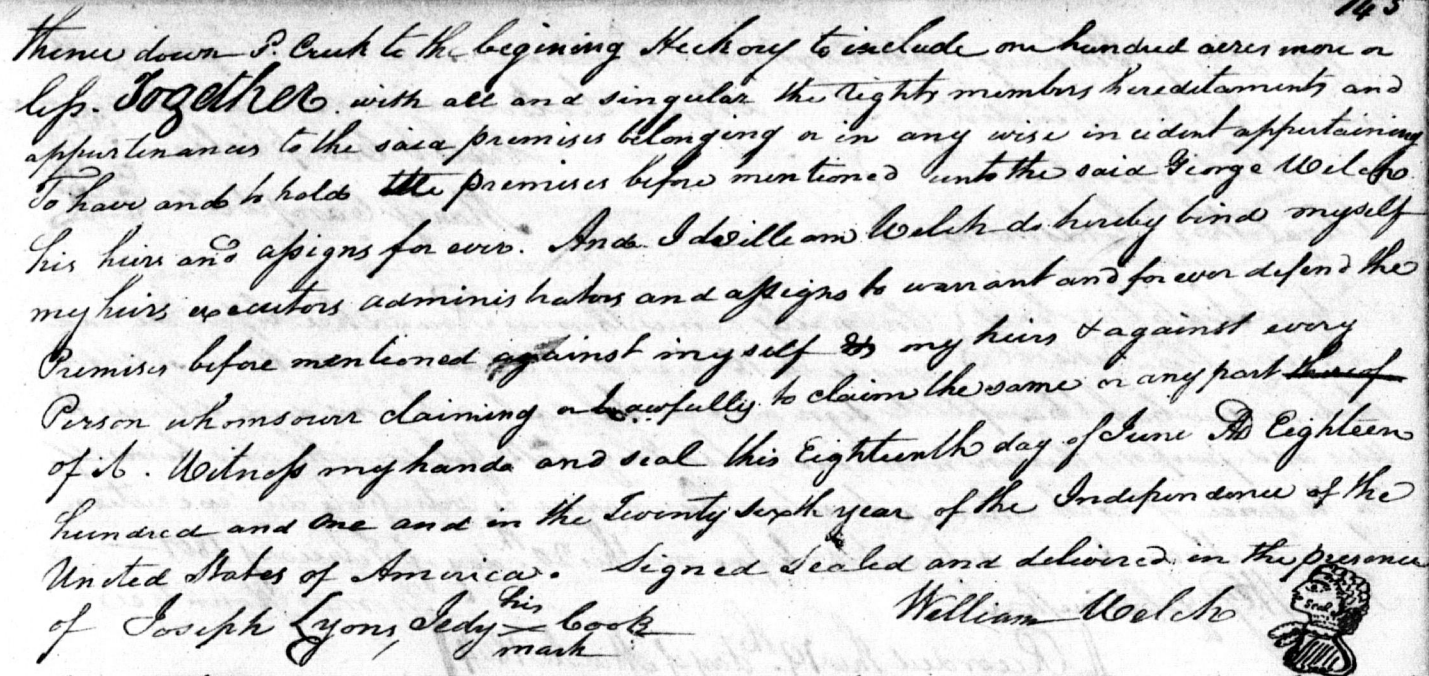 145
thence down P. Creek to the begining Heckory to include one hundred acres more or
less. Together with all and singular the rights members hereditaments and
appurtenances to the said premises belonging or in any wise incident appertaining
To have and to hold the premises before mentioned unto the said George Welch
his heirs and assigns for ever. And I William Welch do hereby bind myself
my heirs executors administrators and assigns to warrant and forever defend the
Premises before mentioned against myself my heirs & against every
Person whomsoever claiming or Lawfully to claim the same or any part thereof
of it. Witness my hand and seal this Eighteenth day of June AD Eighteen
hundred and One and in the Twenty sixth year of the Independence of the
United States of America. Signed Sealed and delivered in the presence
of Joseph Lyons, Jedy his Cook William Welch Seal
mark